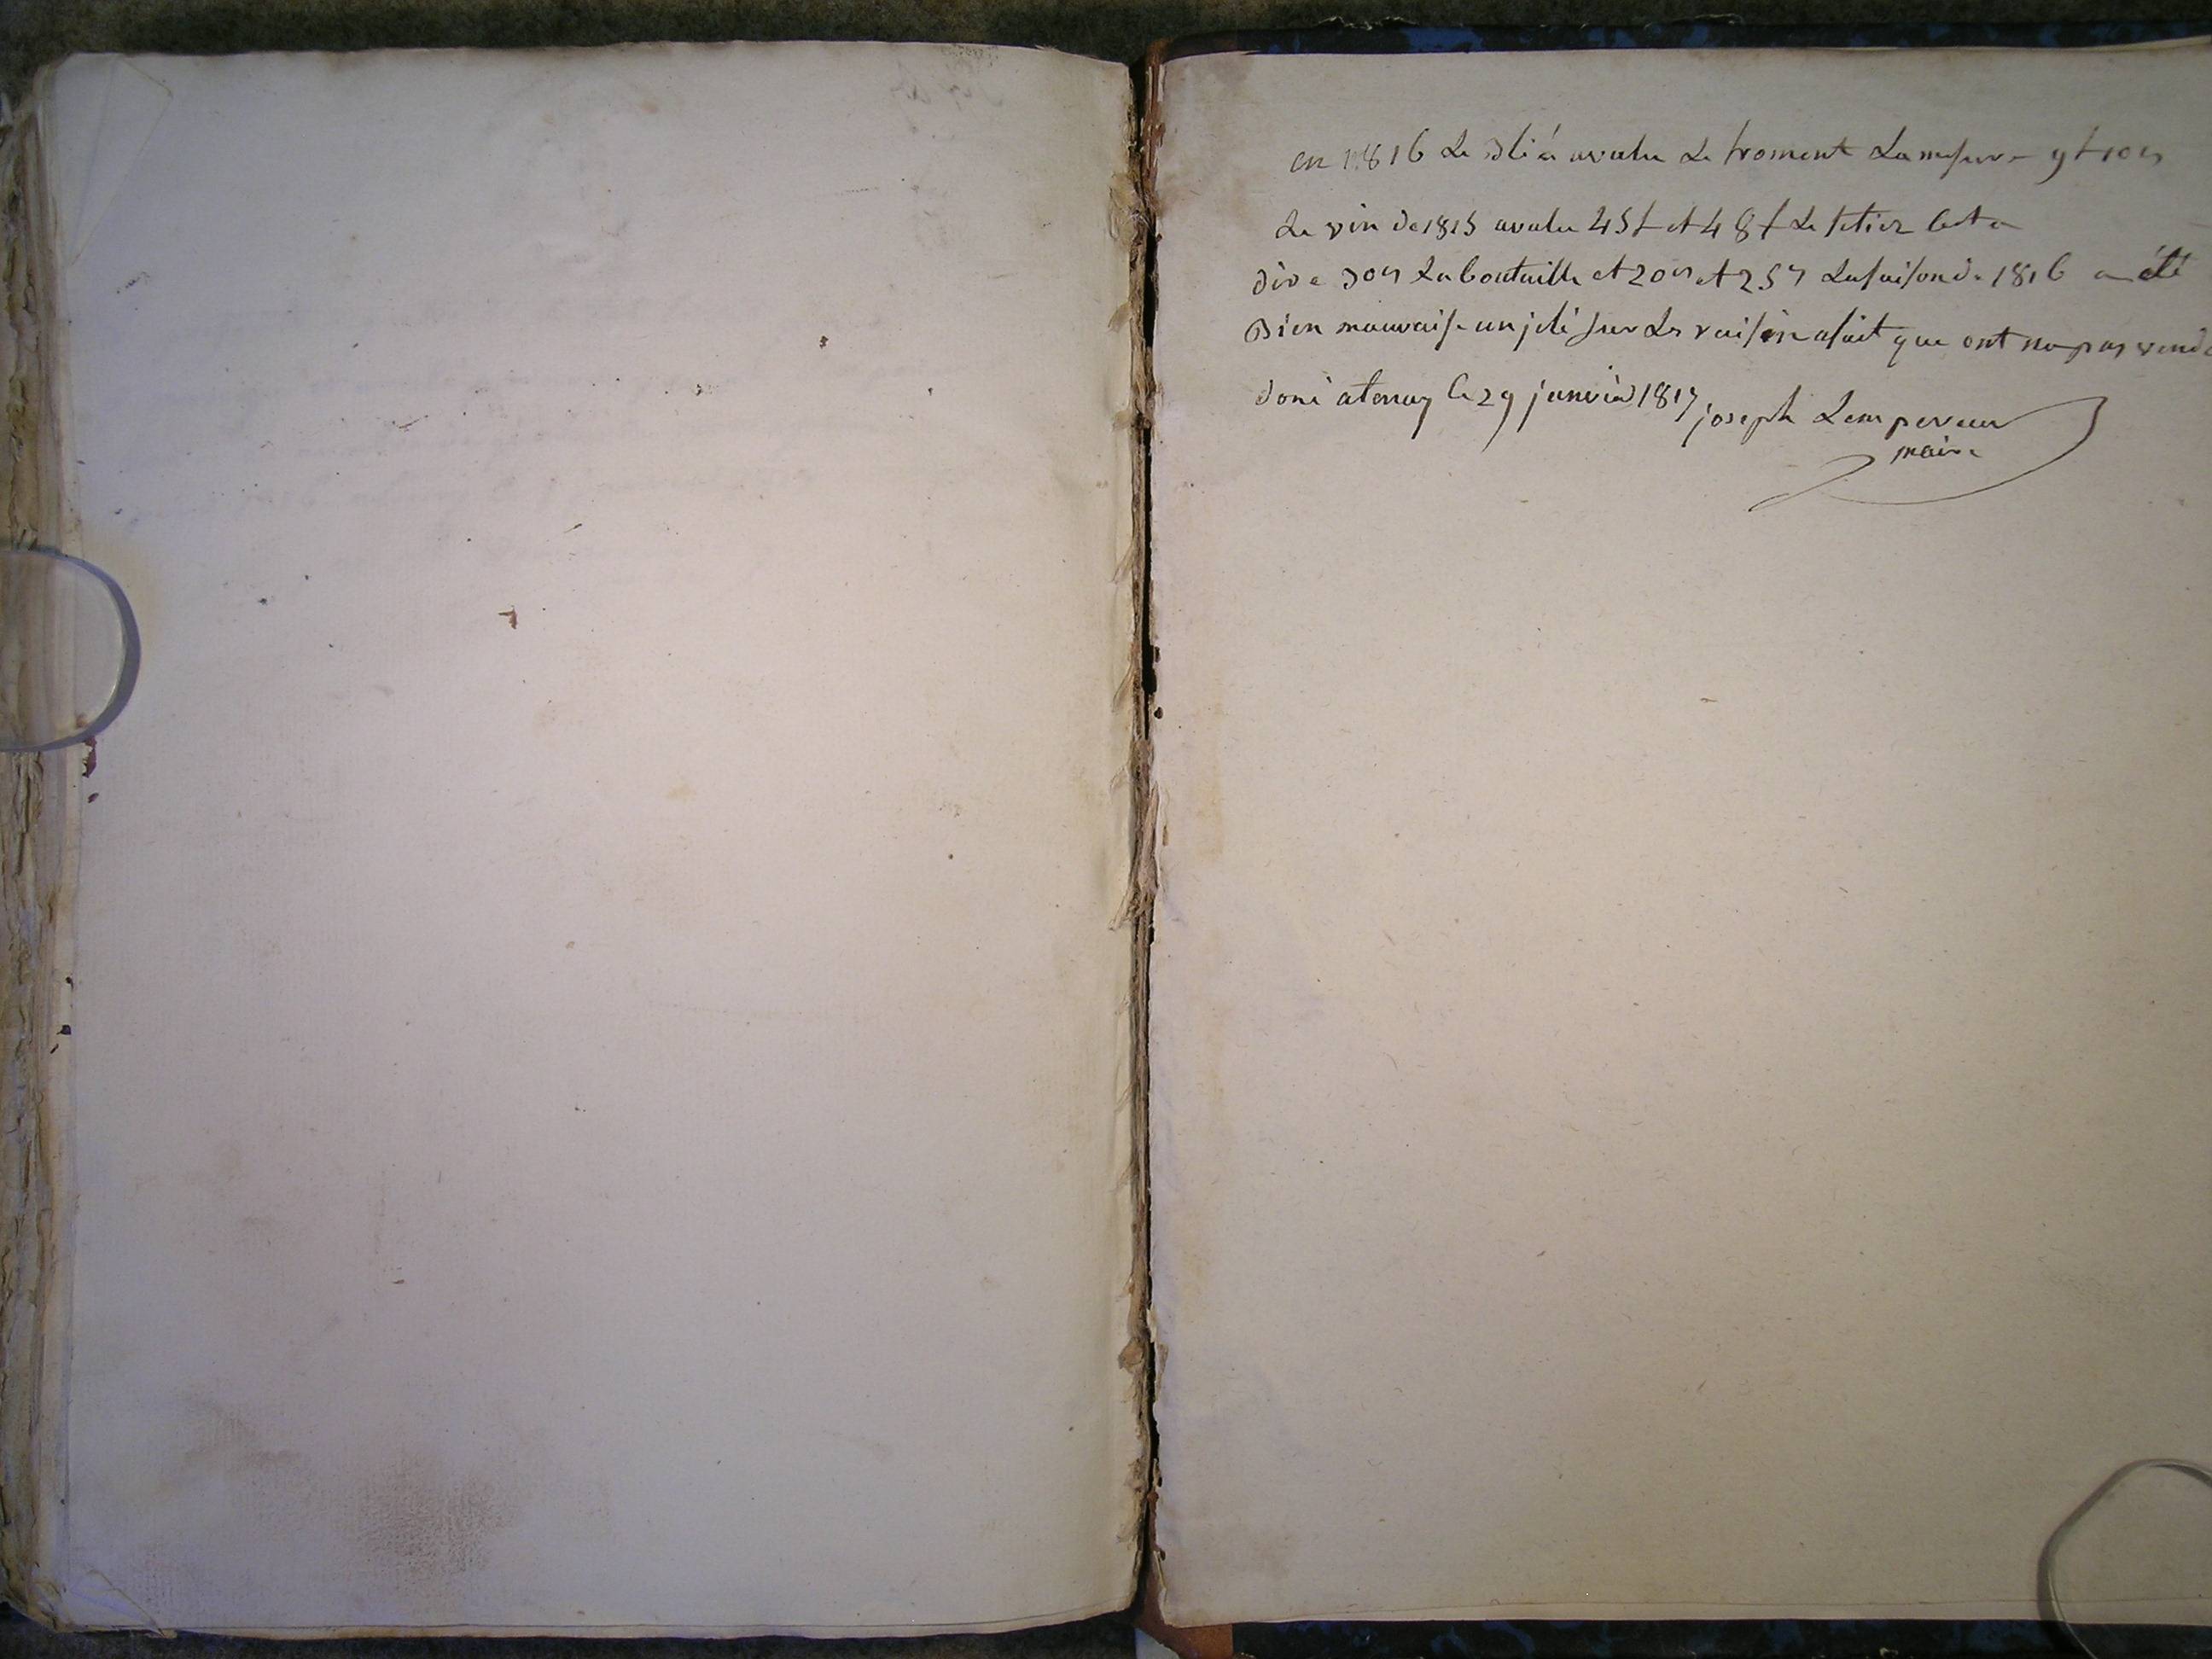 en 1816 Le Blé a avalu Le froment La mesure 9 f 10 s
Le vin de 1815 avalu 45 f et 48 f Le setier Cest a
dire 30 s La boutaille et 20 s et 25 s La saison de 1816 a été
Bien mauvaise un jelé sur Les raisin afait que ont na pas vend
doné aternay le 29 janvier 1817
joseph Lempereur
maire